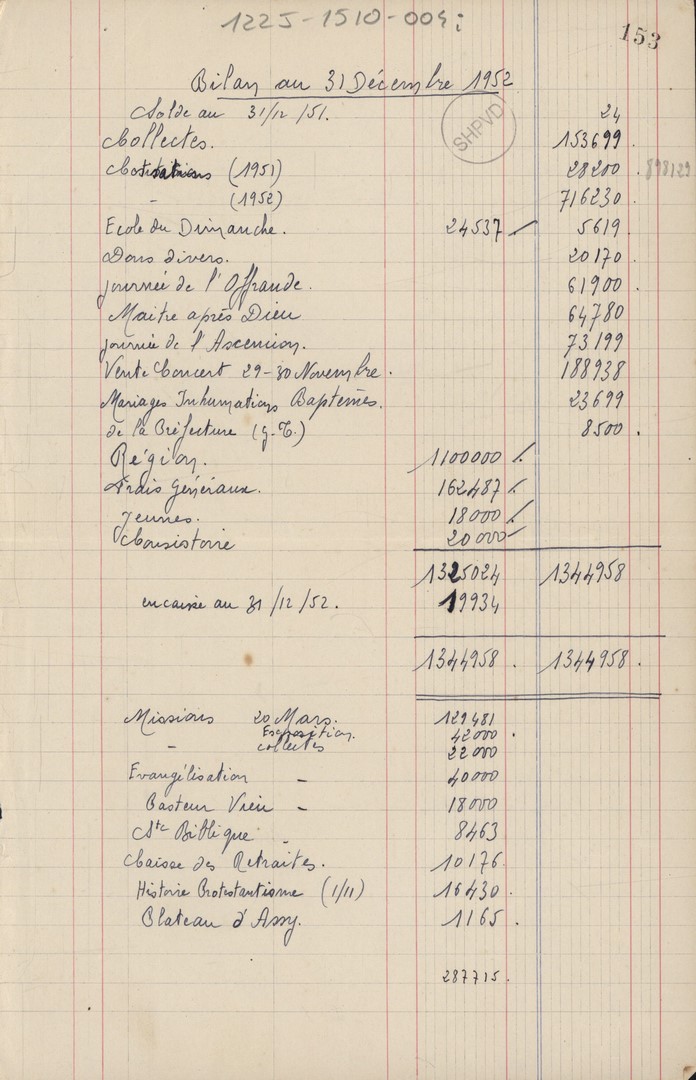 1225-1510-004;
153
Bilan au 31 Décembre 1952
SHPVD
Solde au 31/12/51. 24
Collectes. 153699.
Cotisations (1951) 28200. 898129
- (1952) 716230.
Ecole du Dimanche. 24537 / 5619.
Dons divers. 20170.
journée de l'Offrande. 61900.
Maitre après Dieu 64780
journée de l'Ascension. 73199
Vente Concert 29-30 Novembre. 188938
Mariages Inhumations Baptêmes. 23699
de la Préfecture 8500.
Région. 1100000 /.
Frais Généraux. 162487 /.
Jeunes. 18000 /
Consistoire 20000 /
1325024 1344958
en caisse au 31/12/52. 19934
1344958. 1344958.
Missions 20 Mars. 129481
Exposition. 42000.
- collectes 22000
Evangélisation - 40000
Pasteur Vieu - 18000
Sté Biblique - 8463
Caisse des Retraites. 10176.
Histoire Protestantisme (1/11) 16430.
Plateau d'Assy. 1165.
287715.